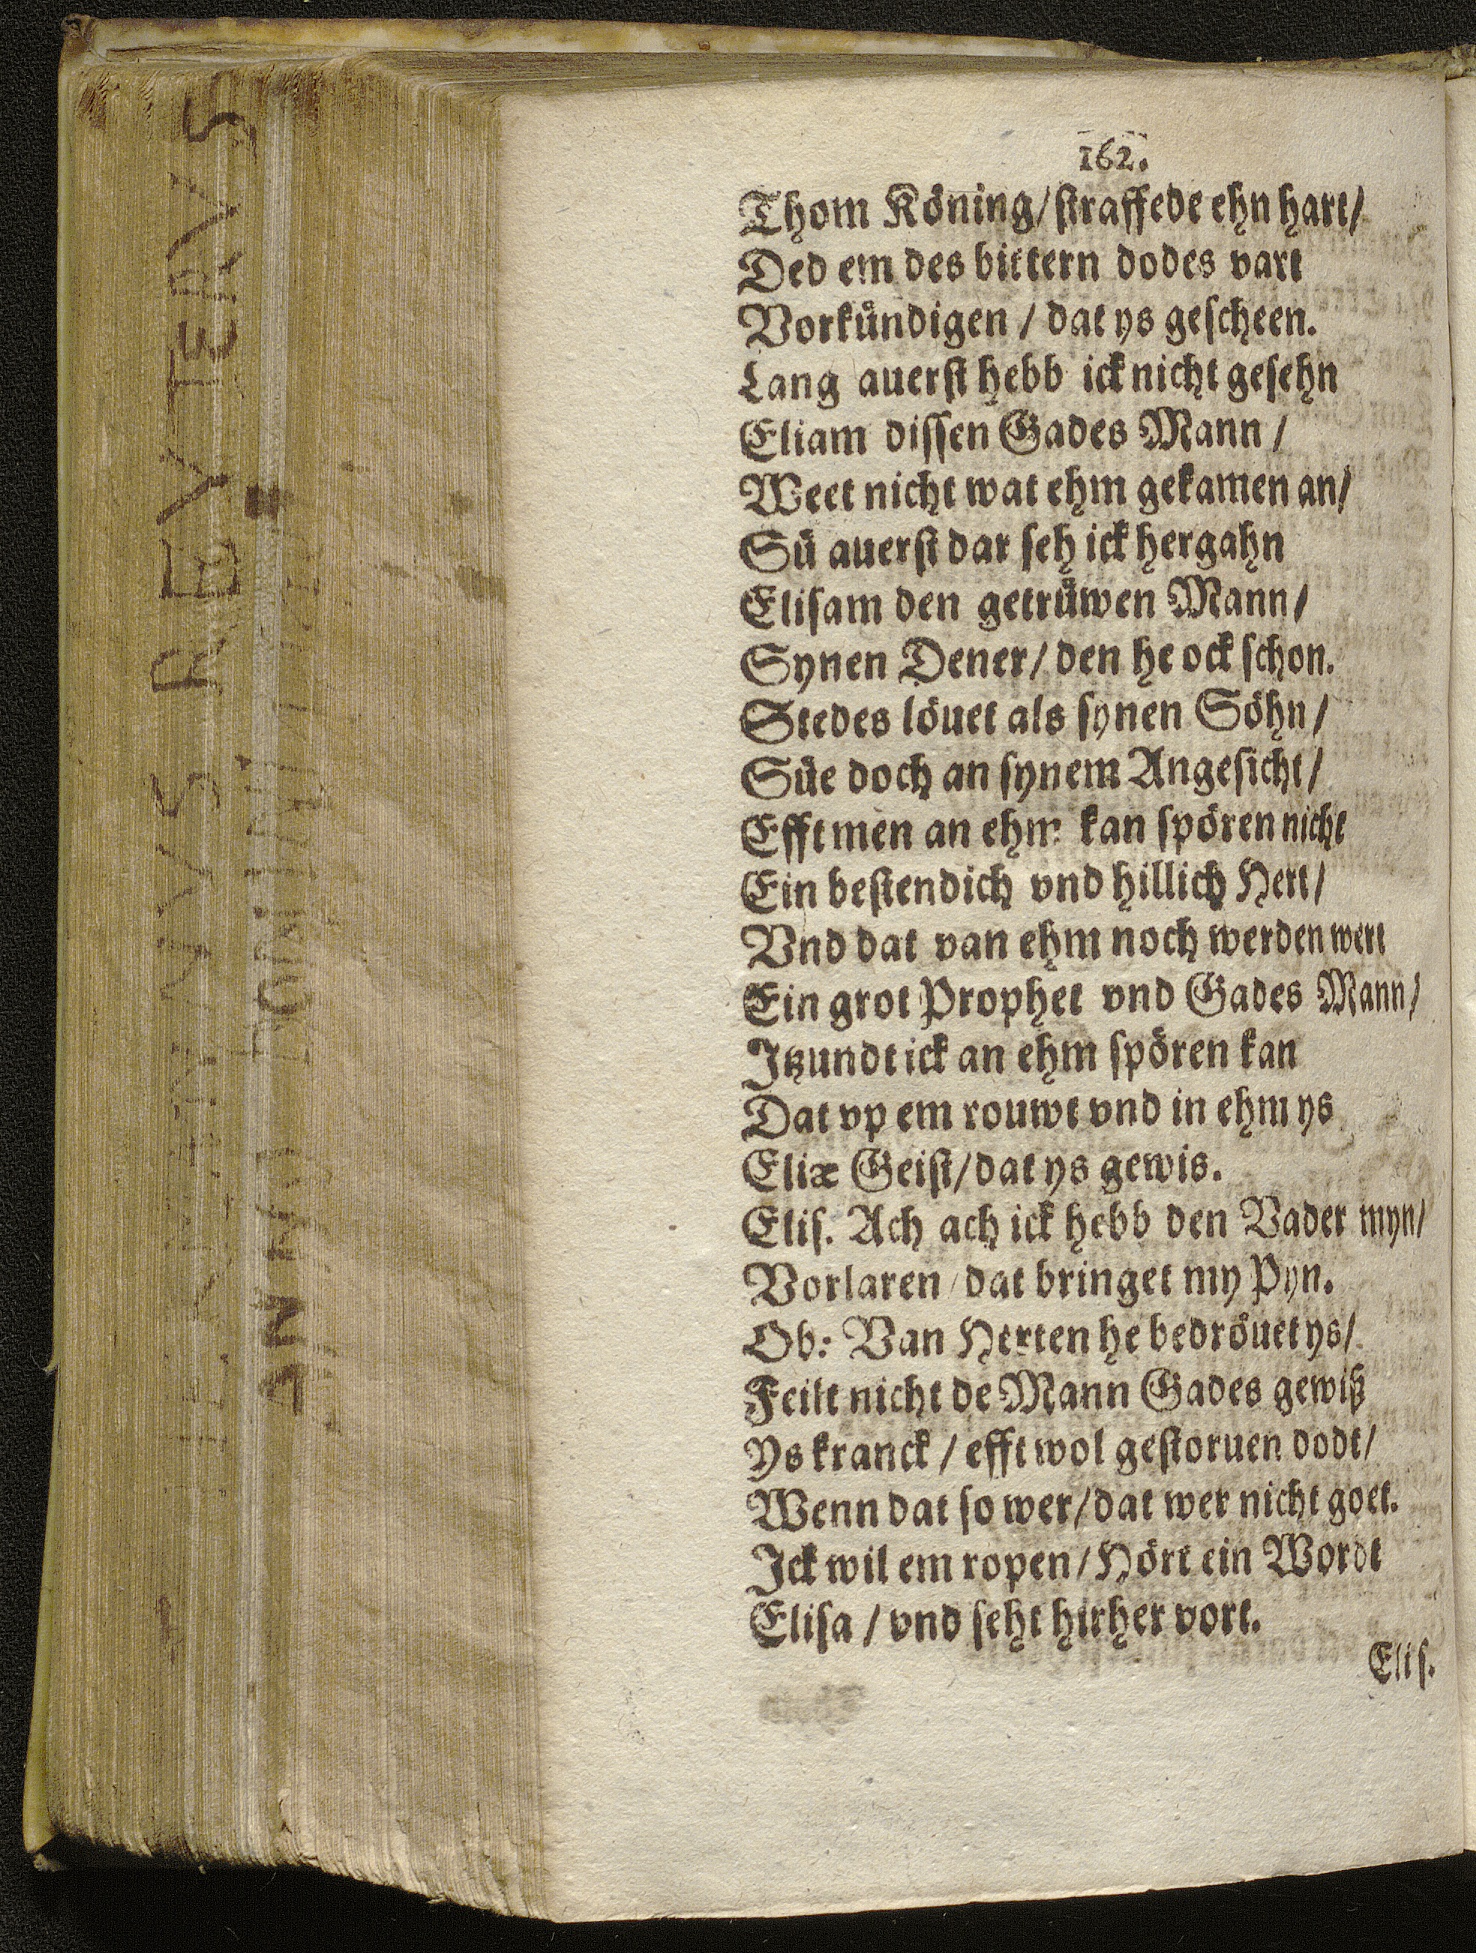 162.
Thom Köning/ straffede ehn hart/
Ded em des bittern dodes vart
Vorkündigen / dat ys gescheen.
Lang auerst hebb ick nicht gesehn
Eliam dissen Gades Mann /
Weet nicht wat ehm gekamen an/
Sü auerst dar seh ick hergahn
Elisam den getrüwen Mann/
Synen Dener/ den he ock schon.
Stedes löuet als synen Söhn/
Süe doch an synem Angesicht/
Efft men an ehm kan spören nicht
Ein bestendich vnd hillich Hert/
Vnd dat van ehm noch werden wert
Ein grot Prophet vnd Gades Mann/
Itzundt ick an ehm spören kan
Dat vp em rouwt vnd in ehm ys
Eliæ Geist/ dat ys gewis.
Elis. Ach ach ick hebb den Vader myn/
Vorlaren / dat bringet my Pyn.
Ob: Van Herten he bedröuet ys/
Feilt nicht de Mann Gades gewiß
Ys kranck / efft wol gestoruen dodt/
Wenn dat so wer/ dat wer nicht goet.
Ick wil em ropen/ Hört ein Wordt
Elisa / vnd seht hirher vort.
Elis.
REV TERVS
ANNO DOMINI